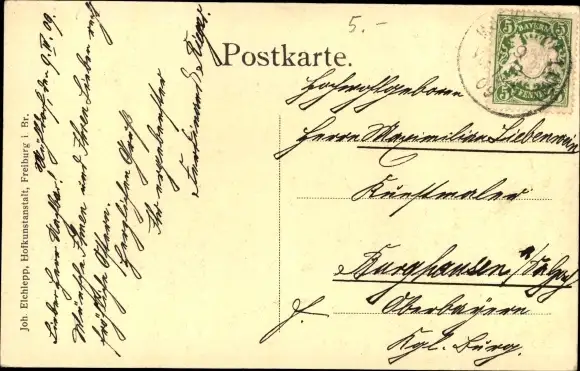 5.-
Postkarte.
5 BAYERN 5
Hochwohlgeboren
Herrn Maximilian Liebenwein
Kunstmaler
Burghausen a/Salzach
Oberbayern
Kgl. Burg.
den 9.IV.09.
Lieber Herr
Wünsche Ihnen und Ihren Lieben recht
fröhliche Ostern.
Herzlichen Gruß
Ihr ergebenster
Ferdinand
Joh. Elchlepp, Hofkunstanstalt, Freiburg i. Br.